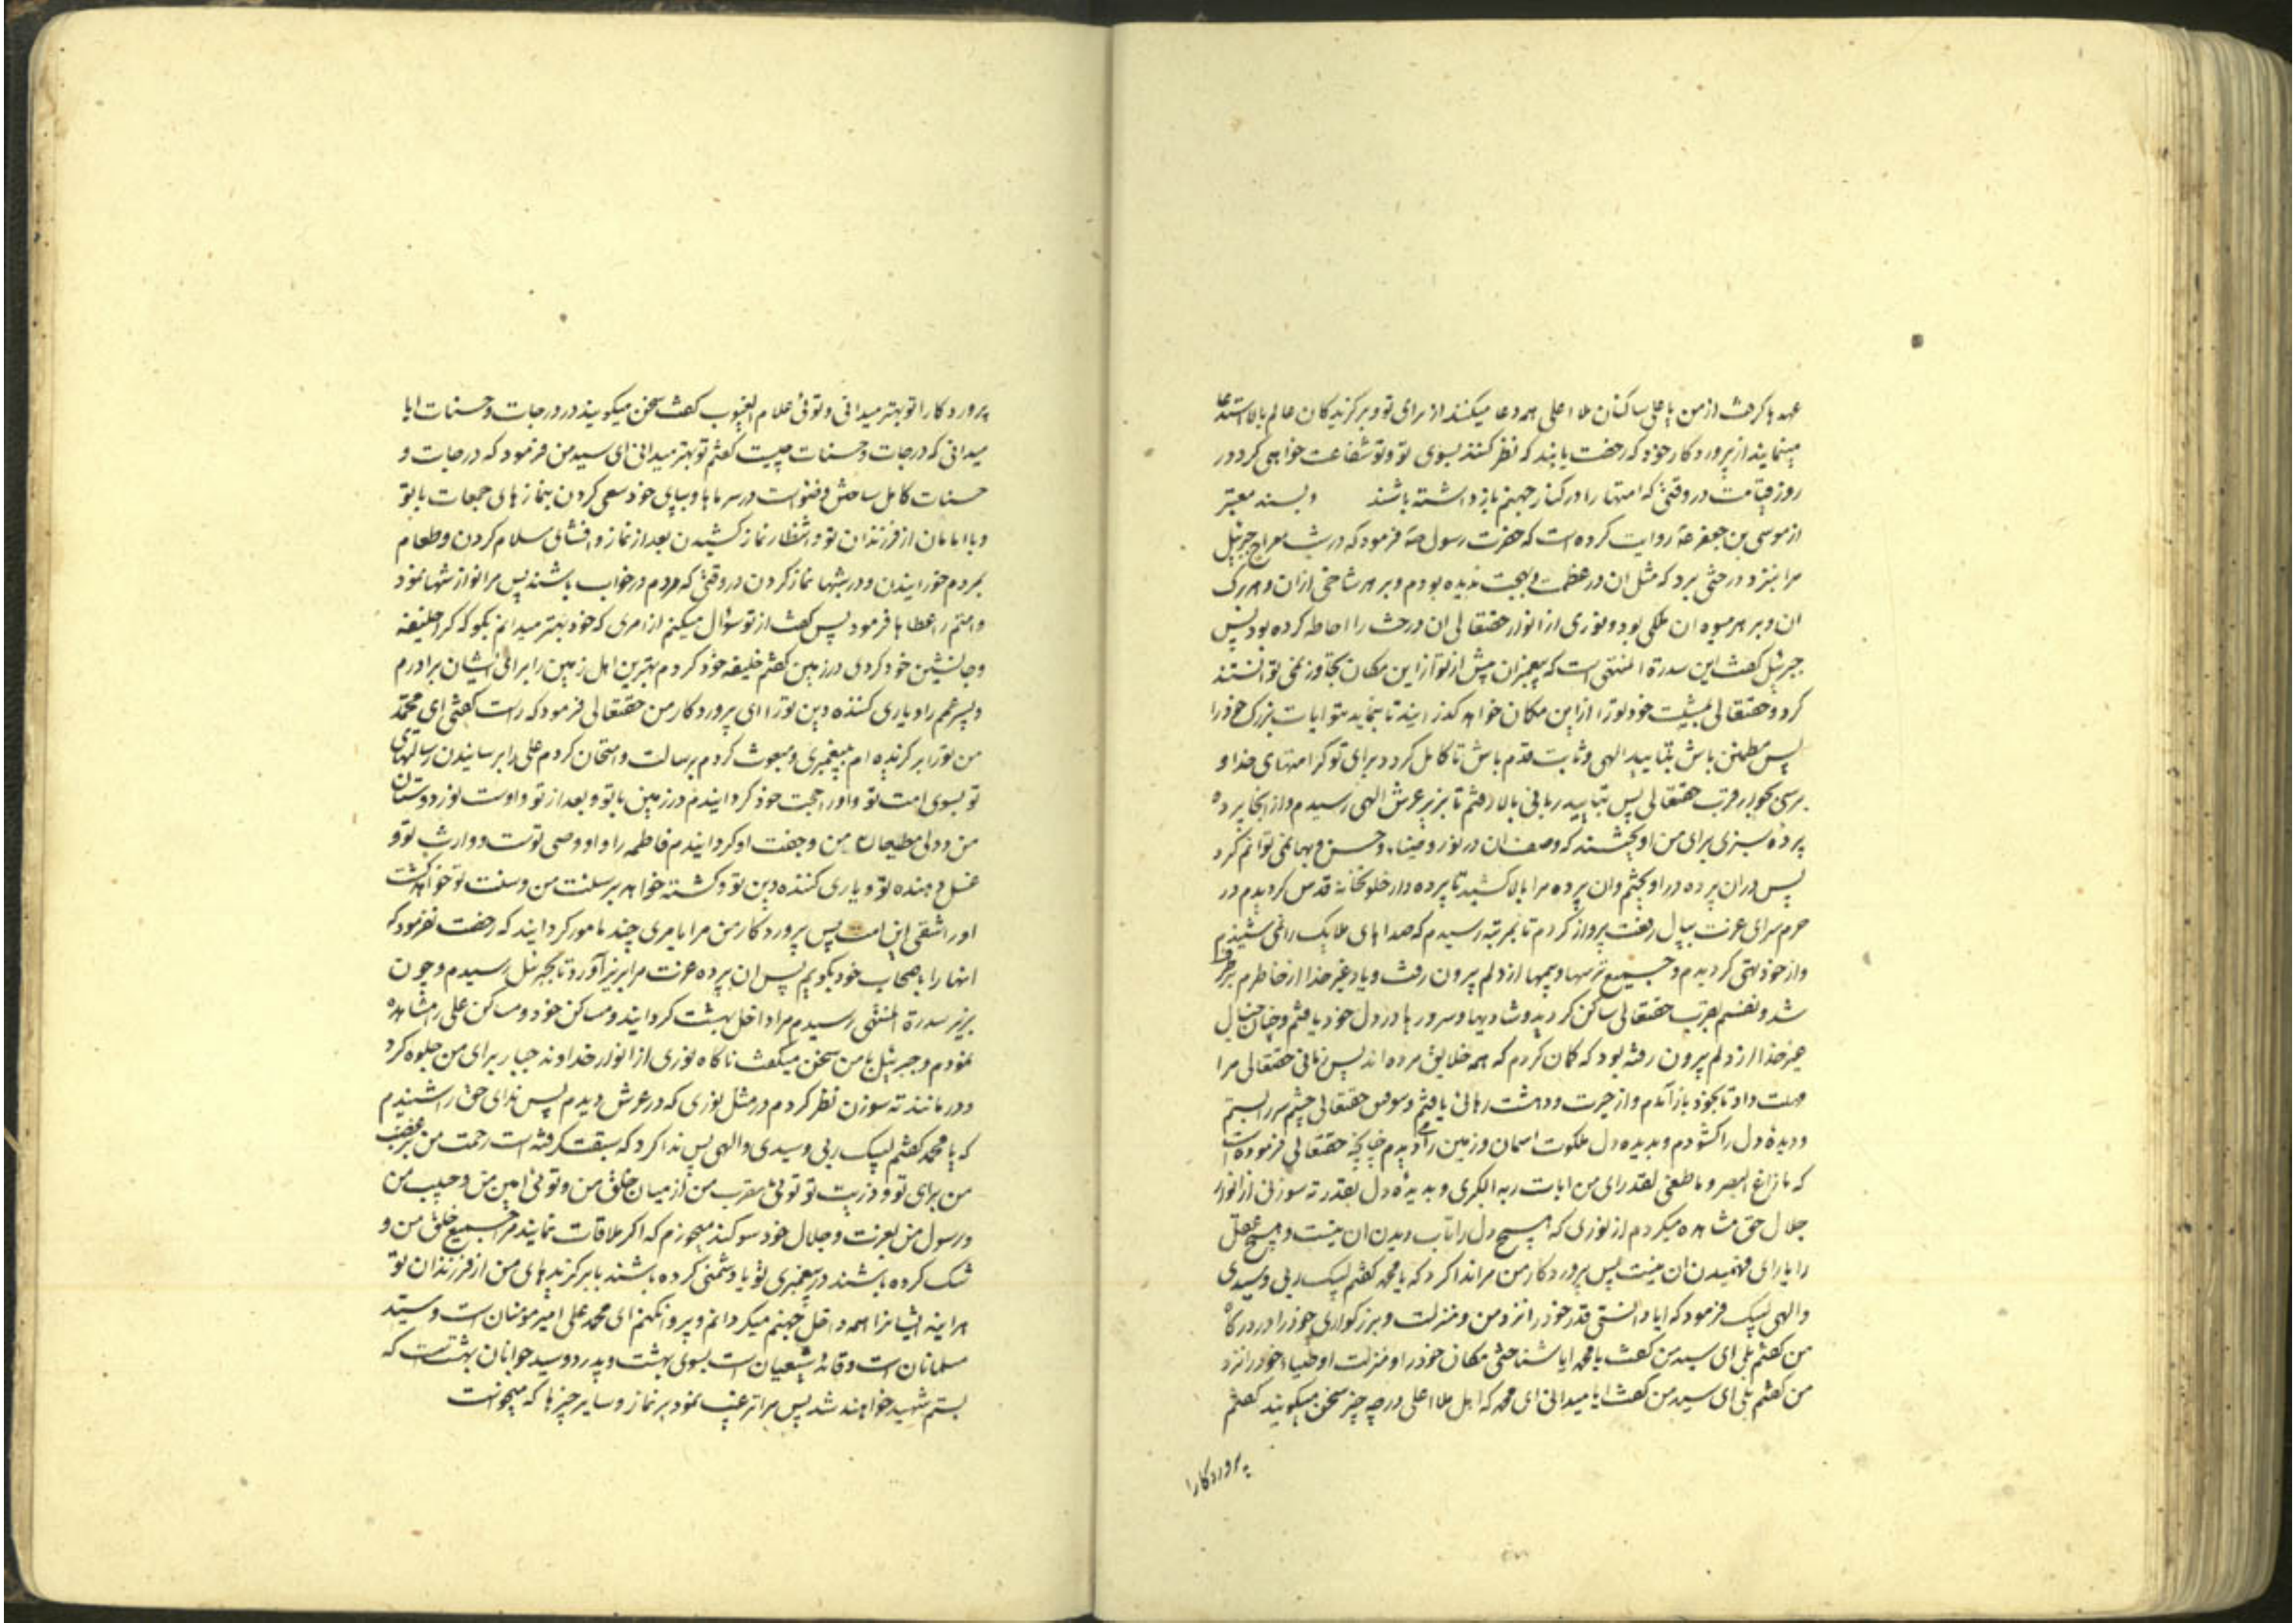 عهدها کرفت از من یا علی ساکنان ملاء اعلی همه دعا میکنند از برای تو و برکزیدکان عالم بالا استدعا
مینمایند از پروردکار خود که رخصت یابند که نظر کنند بسوی تو و تو شفاعت خواهی کرد در
روز قیامت در وقتی که امتها را در کنار جهنم بازداشته باشند و بسند معتبر
از موسی بن جعفر ع روایت کرده است که حضرت رسول ص فرمود که در شب معراج جبرئیل
مرا بنزد درختی برد که مثل ان در عظمت و بهجت ندیده بودم و بر هر شاخی از ان و هر برک
ان و بر هر میوه ان ملکی بود و نوری از انوار حقتعالی ان درخت را احاطه کرده بود پس
جبرئیل کفت این سدرة المنتهی است که پیغمبران پیش از تو از این مکان تجاوز نمی توانستند
کرد و حقتعالی بمشیت خود تو را از این مکان خواهد کذرانید تا بنماید بتو ایات بزرک خود را
پس مطمئن باش بتایید الهی و ثابت قدم باش تا کامل کردد برای تو کرامتهای خدا و
برسی بجوار قرب حقتعالی پس بتایید ربانی بالا رفتم تا بزیر عرش الهی رسیدم و از انجا پرده
پرده سبزی برای من اویختند که وصف ان در نور و ضیاء و حسن و بها نمی توانم کرد
پس در ان پرده در اویختم و ان پرده مرا بالا کشید تا پرده دار خلوتخانه قدس کردیدم در
حرم سرای عزت ببال رفعت پرواز کردم تا بمرتبه رسیدم که صداهای ملایک را نمی شنیدم
و از خود تهی کردیدم و جمیع ترسها و بیمها از دلم بیرون رفت و یاد غیر خدا از خاطرم برطرف
شد و نفسم بقرب حقتعالی ساکن کردید و شادیها و سرورها در دل خود یافتم و چنان خیال
غیر خدا از دلم بیرون رفته بود که کمان کردم که همه خلایق مرده اند پس زمانی حقتعالی مرا
مهلت داد تا بخود باز آمدم و از حیرت و دهشت رهائی یافتم و بتوفیق حقتعالی چشم سر را بستم
و دیدهٔ دل را کشودم و بدیده دل ملکوت اسمان و زمین را می دیدم چنانچه حقتعالی فرموده است
که ما زاغ البصر و ما طغی لقد رای من ایات ربه الکبری و بدیده دل بقدر ته سوزنی از انوار
جلال حق مشاهده میکردم از نوری که هیچ دل را تاب دیدن ان نیست و هیچ عقلی
را یارای فهمیدن ان نیست پس پروردکار من مرا ندا کرد که یا محمد کفتم لبیک ربی و سیدی
و الهی لبیک فرمود که ایا دانستی قدر خود را نزد من و منزلت و بزرکواری خود را در درکاه
من کفتم بلی ای سید من کفت یا محمد ایا شناختی مکان خود را و منزلت اوصیاء خود را نزد
من کفتم بلی ای سید من کفت ایا میدانی ای محمد که اهل ملاء اعلی در چه چیز سخن میکویند کفتم
پروردکارا
پروردکارا تو بهتر میدانی و توئی علام الغیوب کفت سخن میکویند در درجات و حسنات ایا
میدانی که درجات و حسنات چیست کفتم تو بهتر میدانی ای سید من فرمود که درجات و
حسنات کامل ساختن وضو است در سرماها و بپای خود سعی کردن بنمازهای جمعات با تو
و با امامان از فرزندان تو و انتظار نماز کشیدن بعد از نماز و افشای سلام کردن و طعام
بمردم خورانیدن و در شبها نماز کردن در وقتی که مردم در خواب باشند پس مرا نوازشها نمود
و امتم را عطاها فرمود پس کفت از تو سؤال میکنم از امری که خود بهتر میدانم بکو که کرا خلیفه
و جانشین خود کردی در زمین کفتم خلیفه خود کردم بهترین اهل زمین را برای ایشان برادرم
و پسر عمم را و یاری کننده دین تو را ای پروردکار من حقتعالی فرمود که راست کفتی ای محمد
من تو را برکزیده ام بپیغمبری و مبعوث کردم برسالت و امتحان کردم علی را برسانیدن رسالتهای
تو بسوی امت تو و او را حجت خود کردانیدم در زمین با تو و بعد از تو و اوست نور دوستان
من و ولی مطیعان من و جفت او کردانیدم فاطمه را و او وصی توست و وارث تو و
غسل دهنده تو و یاری کننده دین تو و کشته خواهد بر سنت من و سنت تو خواهد کشت
او را شقی این امت پس پروردکار من مرا بامری چند مامور کردانید که رخصت نفرمود که
انها را باصحاب خود بکویم پس ان پرده عزت مرا بزیر آورد تا بجبرئیل رسیدم و چون
بزیر سدرة المنتهی رسیدم مرا داخل بهشت کردانید و مساکن خود و مساکن علی را مشاهده
نمودم و جبرئیل با من سخن میکفت ناکاه نوری از انوار خداوند جبار برای من جلوه کرد
و در مانند ته سوزن نظر کردم در مثل نوری که در عرش دیدم پس ندای حق را شنیدم
که یا محمد کفتم لبیک ربی و سیدی و الهی پس ندا کرد که سبقت کرفته است رحمت من بر غضب
من برای تو و ذریت تو توئی مقرب من از میان خلق من و توئی امین من و حبیب من
و رسول من بعزت و جلال خود سوکند میخورم که اکر ملاقات نمایند مرا جمیع خلق من و
شک کرده باشند در پیغمبری تو یا دشمنی کرده باشند با برکزیدهای من از فرزندان تو
هراینه ایشانرا همه داخل جهنم میکردانم و پروا نکنم ای محمد علی امیر مومنان است و سید
مسلمانان است و قائد شیعیان است بسوی بهشت و پدر دو سید جوانان بهشت است که
بستم شهید خواهند شد پس مرا ترغیب نمود بر نماز و سایر چیزها که میخواست